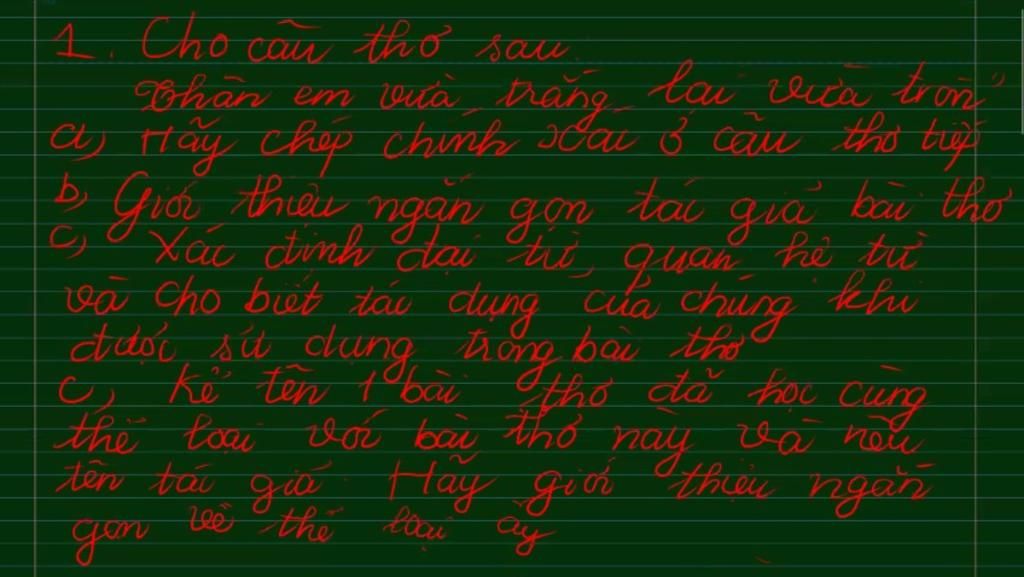 1. Cho câu thơ sau.
Thân em vừa trắng lại vừa tròn"
a) Hãy chép chính xác 3 câu thơ tiếp
b) Giới thiệu ngắn gọn tác giả bài thơ
c) Xác định đại từ, quan hệ từ
và cho biết tác dụng của chúng khi
được sử dụng trong bài thơ
c) Kể tên 1 bài thơ đã học cùng
thể loại với bài thơ này và nêu
tên tác giả. Hãy giới thiệu ngắn
gọn về thể loại ấy